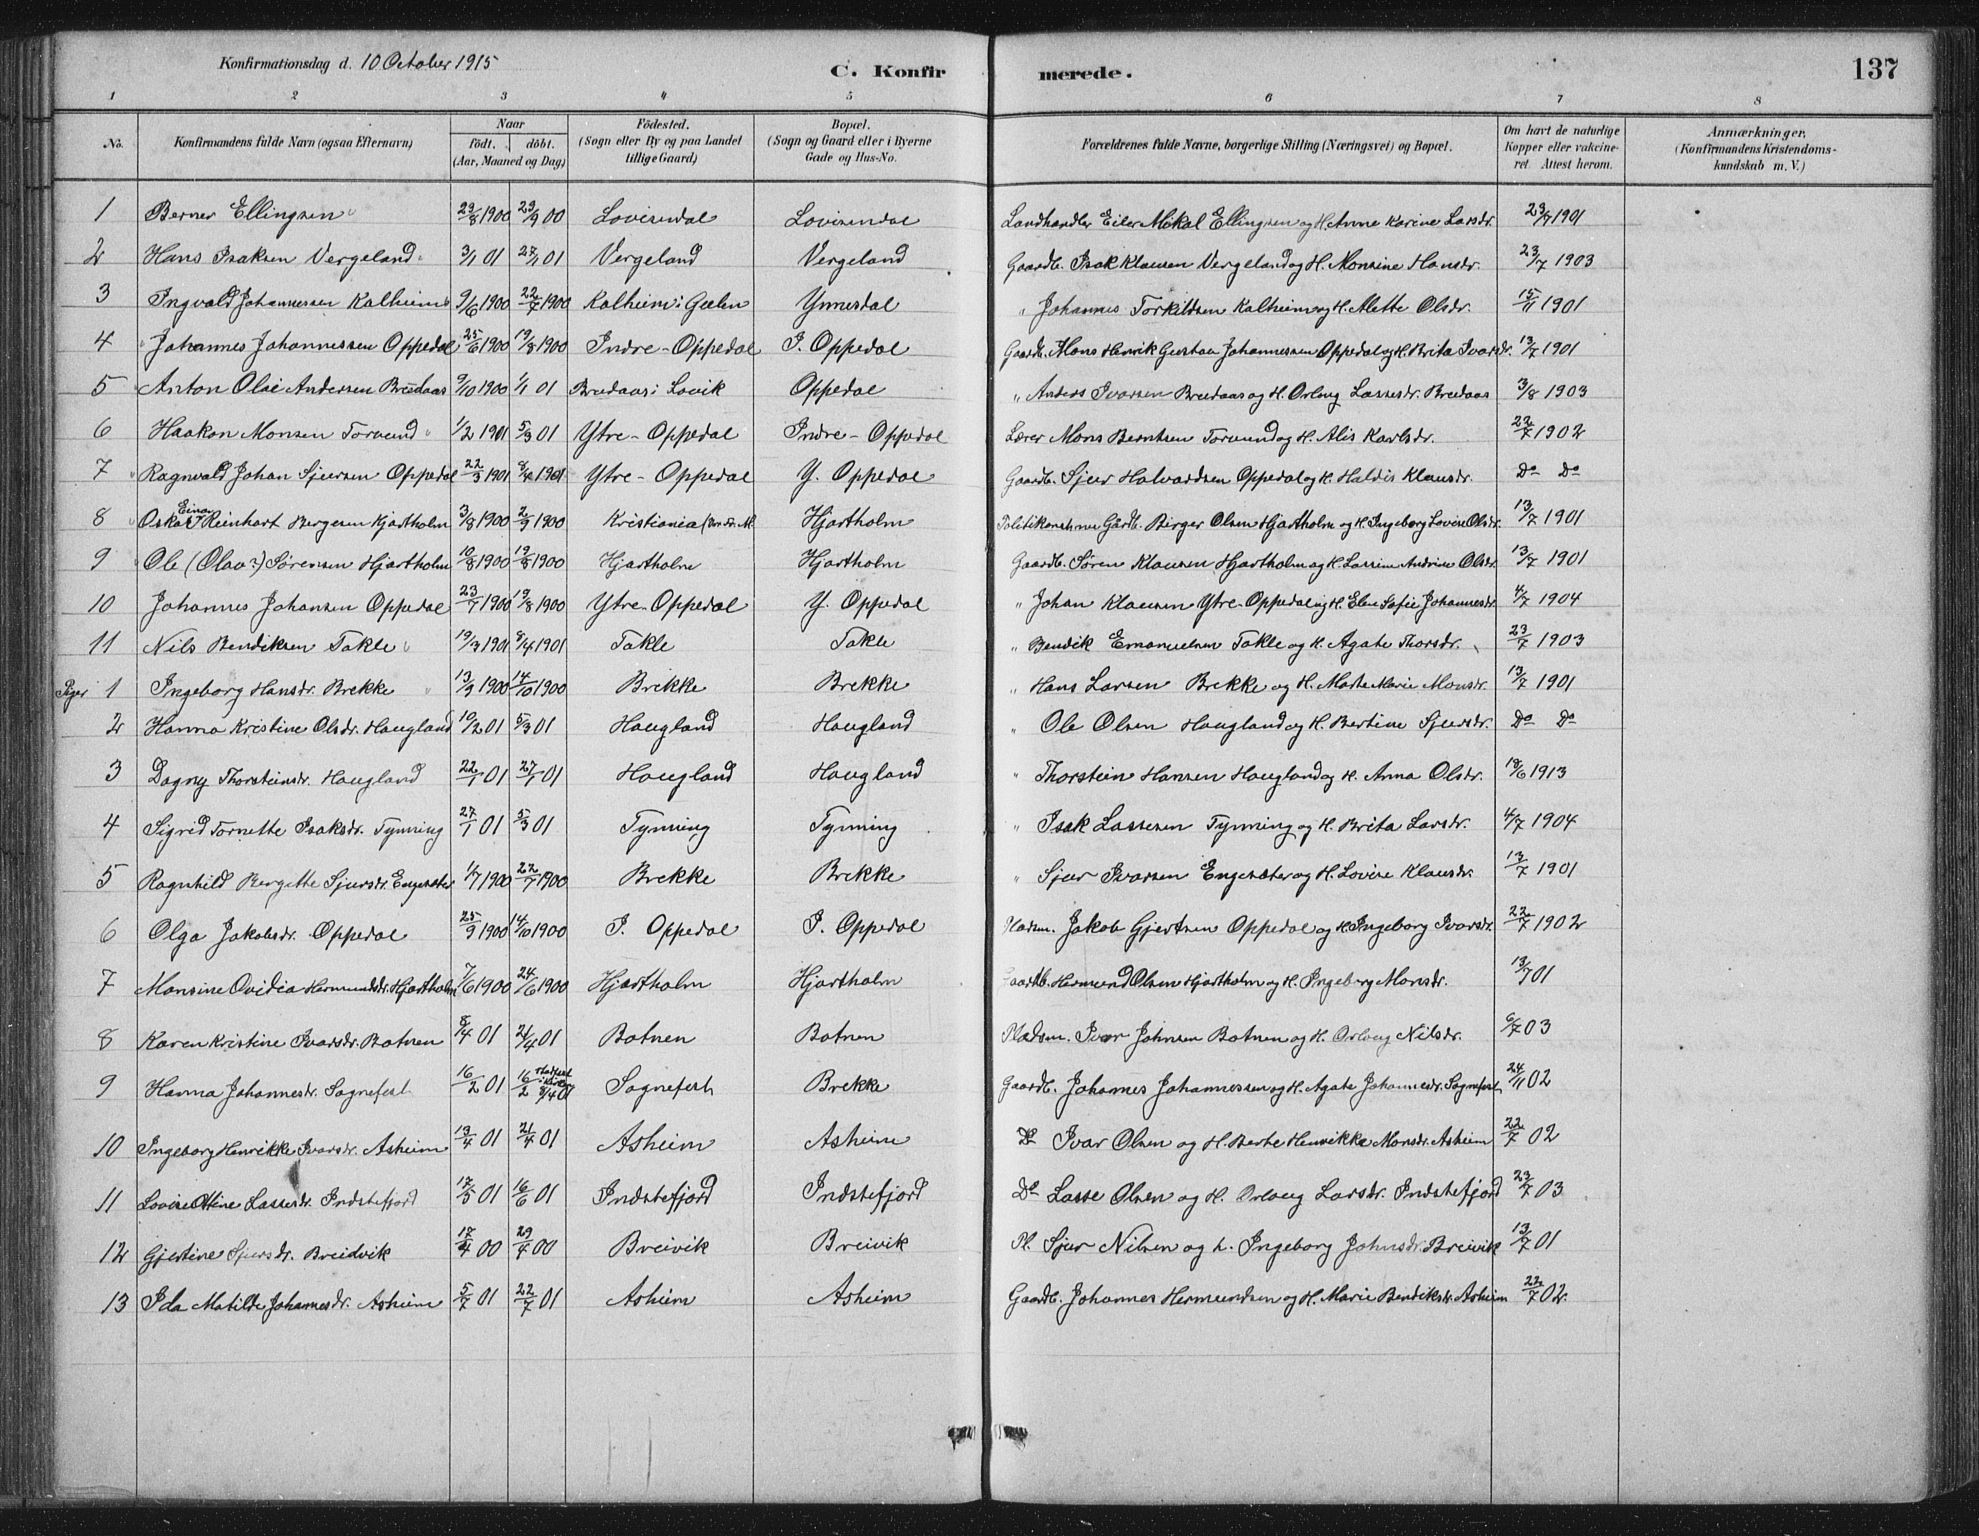 Konfirmationsdag d. 10 October 1915
C. Konfir merede. 137
1 2 3 4 5 6 7 8
No. Konfirmandens fulde Navn (ogsaa Efternavn) Naar födt. döbt. (Aar, Maaned og Dag) Födested. (Sogn eller By og paa Landet tillige Gaard) Bopæl. (Sogn og Gaard eller i Byerne Gade og Hus-No. Forældrenes fulde Navne, borgerlige Stilling (Næringsvei) og Bopæl. Om havt de naturlige Kopper eller vakcineret Attest herom. Anmærkninger, (Konfirmandens Kristendomskundskab m. V.)
1 Berner Ellingsen 29/8 1900 23/9 00 Lovisendal Lovisendal Landhandler Eiler Mikal Ellingsen og H. Anne Karine Larsdr. 23/7 1901
2 Hans Isaksen Vergeland 3/1 01 27/1 01 Vergeland Vergeland Gaardb. Isak Klausen Vergeland og H. Monsine Hansdr. 23/7 1903
3 Ingvald Johannessen Kalheim 9/6 1900 22/7 1900 Kalheim i Gulen Ynnesdal " Johannes Torkildsen Kalheim og H. Alette Olsdr. 15/11 1901
4 Johannes Johannessen Oppedal 25/6 1900 19/8 1900 Indre-Oppedal I. Oppedal Gaardb. Mons Henrik Gustav Johannessen Oppedal og H. Brita Ivarsdr. 13/7 1901
5 Anton Olai Andersen Breidaas 9/10 1900 1/1 01 Breidaas i Lavik Oppedal " Anders Ivarsen Breidaas og H. Orloug Lassesdr. Breidaas 3/8 1903
6 Haakon Monsen Torvund 1/2 1901 5/3 01 Ytre-Oppedal Indre-Oppedal Lærer Mons Berntsen Torvund og H. Alis Karlsdr. 22/7 1902
7 Ragnvald Johan Sjursen Oppedal 22/3 1901 8/4 1901 Ytre-Oppedal Y. Oppedal Gaardb. Sjur Halvardsen Oppedal og H. Haldis Klausdr. Do Do
8 Oskar Einar Reinhart Bergesen Hjartholm 3/8 1900 2/9 1900 Kristiania Hjartholm Gårdb. Birger Olsen Hjartholm og H. Ingeborg Lovise Olsdr. 13/7 1901
9 Ole (Olav?) Sørensen Hjartholm 10/8 1900 19/8 1900 Hjartholm Hjartholm Gaardb. Søren Klausen Hjartholm og H. Lassine Andrine Olsdr. 13/7 1901
10 Johannes Johansen Oppedal 23/7 1900 19/8 1900 Ytre-Oppedal Y. Oppedal " Johan Klausen Ytre-Oppedal og H. Elen Sofie Johannesdr. 4/7 1904
11 Nils Bendiksen Takle 19/3 1901 8/4 1901 Takle Takle " Bendik Emanuelsen Takle og H. Agate Thorsdr. 23/7 1903
Piger 1 Ingeborg Hansdr. Brekke 13/9 1900 14/10 1900 Brekke Brekke " Hans Larsen Brekke og H. Marta Marie Monsdr. 13/7 1901
2 Hanna Kristine Olsdr. Haugland 10/2 01 5/3 01 Haugland Haugland " Ole Olsen Haugland og H. Bertine Sjursdr. Do Do
3 Dagny Thorsteinsdr. Haugland 22/1 01 27/1 01 Haugland Haugland " Thorstein Hansen Haugland og H. Anna Olsdr. 18/6 1913
4 Sigrid Tornette Isaksdr. Tynning 27/1 01 5/3 01 Tynning Tynning " Isak Lassesen Tynning og H. Brita Larsdr. 4/7 1904
5 Ragnhild Bergitte Sjursdr. Engesæter 1/7 1900 22/7 1900 Brekke Brekke " Sjur Ivarsen Engesæter og H. Lovise Klausdr. 13/7 1901
6 Olga Jakobsdr. Oppedal 25/9 1900 14/10 1900 I. Oppedal I. Oppedal Pladsm. Jakob Gjertsen Oppedal og H. Ingeborg Ivarsdr. 22/7 1902
7 Monsine Ovidia Hermundsdr. Hjartholm 7/6 1900 24/6 1900 Hjartholm Hjartholm Gaardb. Hermund Olsen Hjartholm og H. Ingeborg Monsdr. 13/7 01
8 Karen Kristine Ivarsdr. Botnen 8/4 01 21/4 01 Botnen Botnen Pladsm. Ivar Johnsen Botnen og H. Orloug Nilsdr. 6/7 03
9 Hanna Johannesdr. Sognefest 16/2 01 16/2 8/4 01 Sognefest Brekke Gaardb. Johannes Johannessen og H. Agate Johannesdr. Sognefest 24/11 02
10 Ingeborg Henrikke Ivarsdr. Asheim 13/4 01 21/4 01 Asheim Asheim Do Ivar Olsen og H. Berte Henrikke Monsdr. Asheim 22/7 02
11 Lovise Oline Lassesdr. Indstefjord 17/5 01 16/6 01 Indstefjord Indstefjord Do Lasse Olsen og H. Orloug Larsdr. Indstefjord 23/7 03
12 Gjertine Sjursdr. Breidvik 17/4 00 29/4 00 Breivik Breivik Pl. Sjur Nilsen og h. Ingeborg Johnsdr. Breivik 13/7 01
13 Ida Matilde Johannesdr. Asheim 5/7 01 22/7 01 Asheim Asheim Gaardb. Johannes Hermundsen og H. Marie Bendiksdr. Asheim 22/7 02.